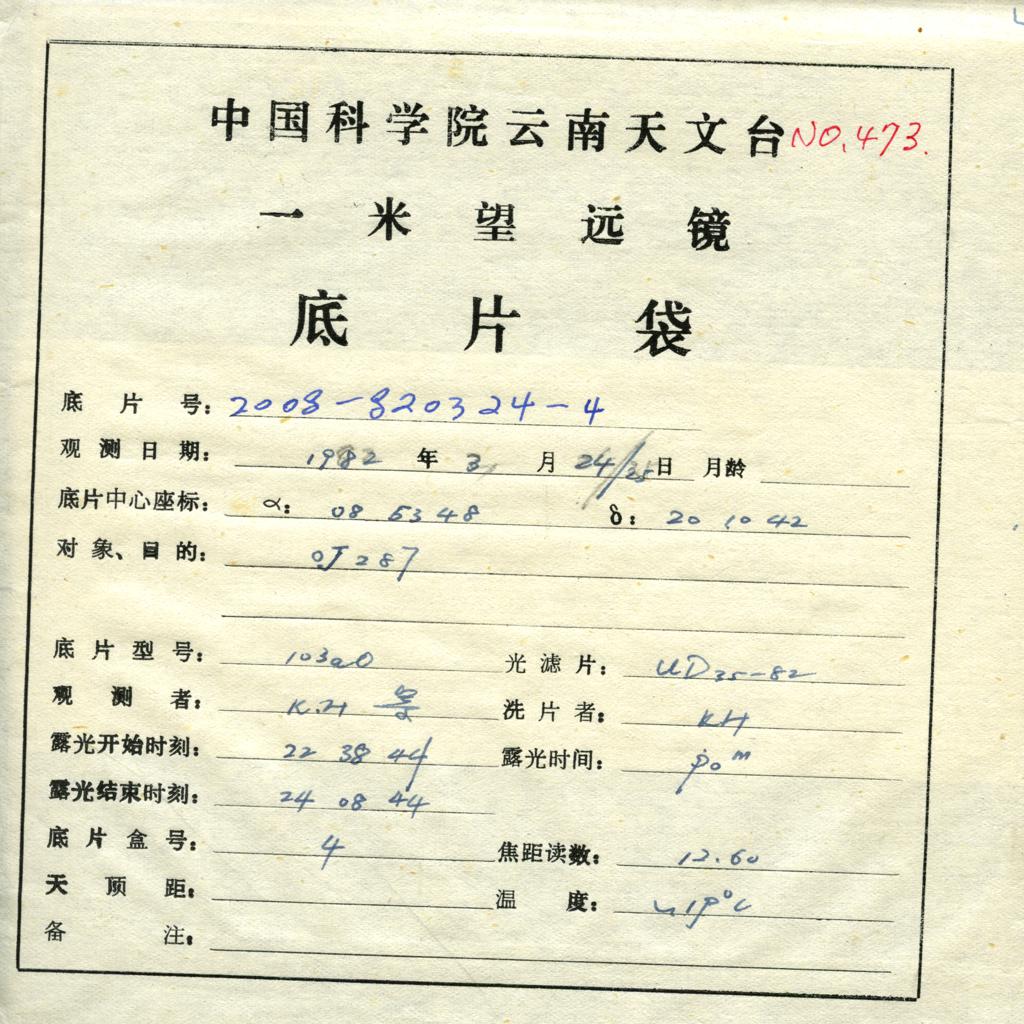 中国科学院云南天文台 NO.473.
一米望远镜
底片袋
底片号: 2008-820324-4
观测日期: 1982 年 3 月 24/25 日 月龄
底片中心座标: α: 08 53 48 δ: 20 10 42
对象、目的: OJ 287
底片型号: 103aO 光滤片:
观测者: K.H 洗片者: KH
露光开始时刻: 22 38 44 露光时间: 90m
露光结束时刻: 24 08 44
底片盒号: 4 焦距读数: 12.60
天顶距: 温度: 19°C
备注: